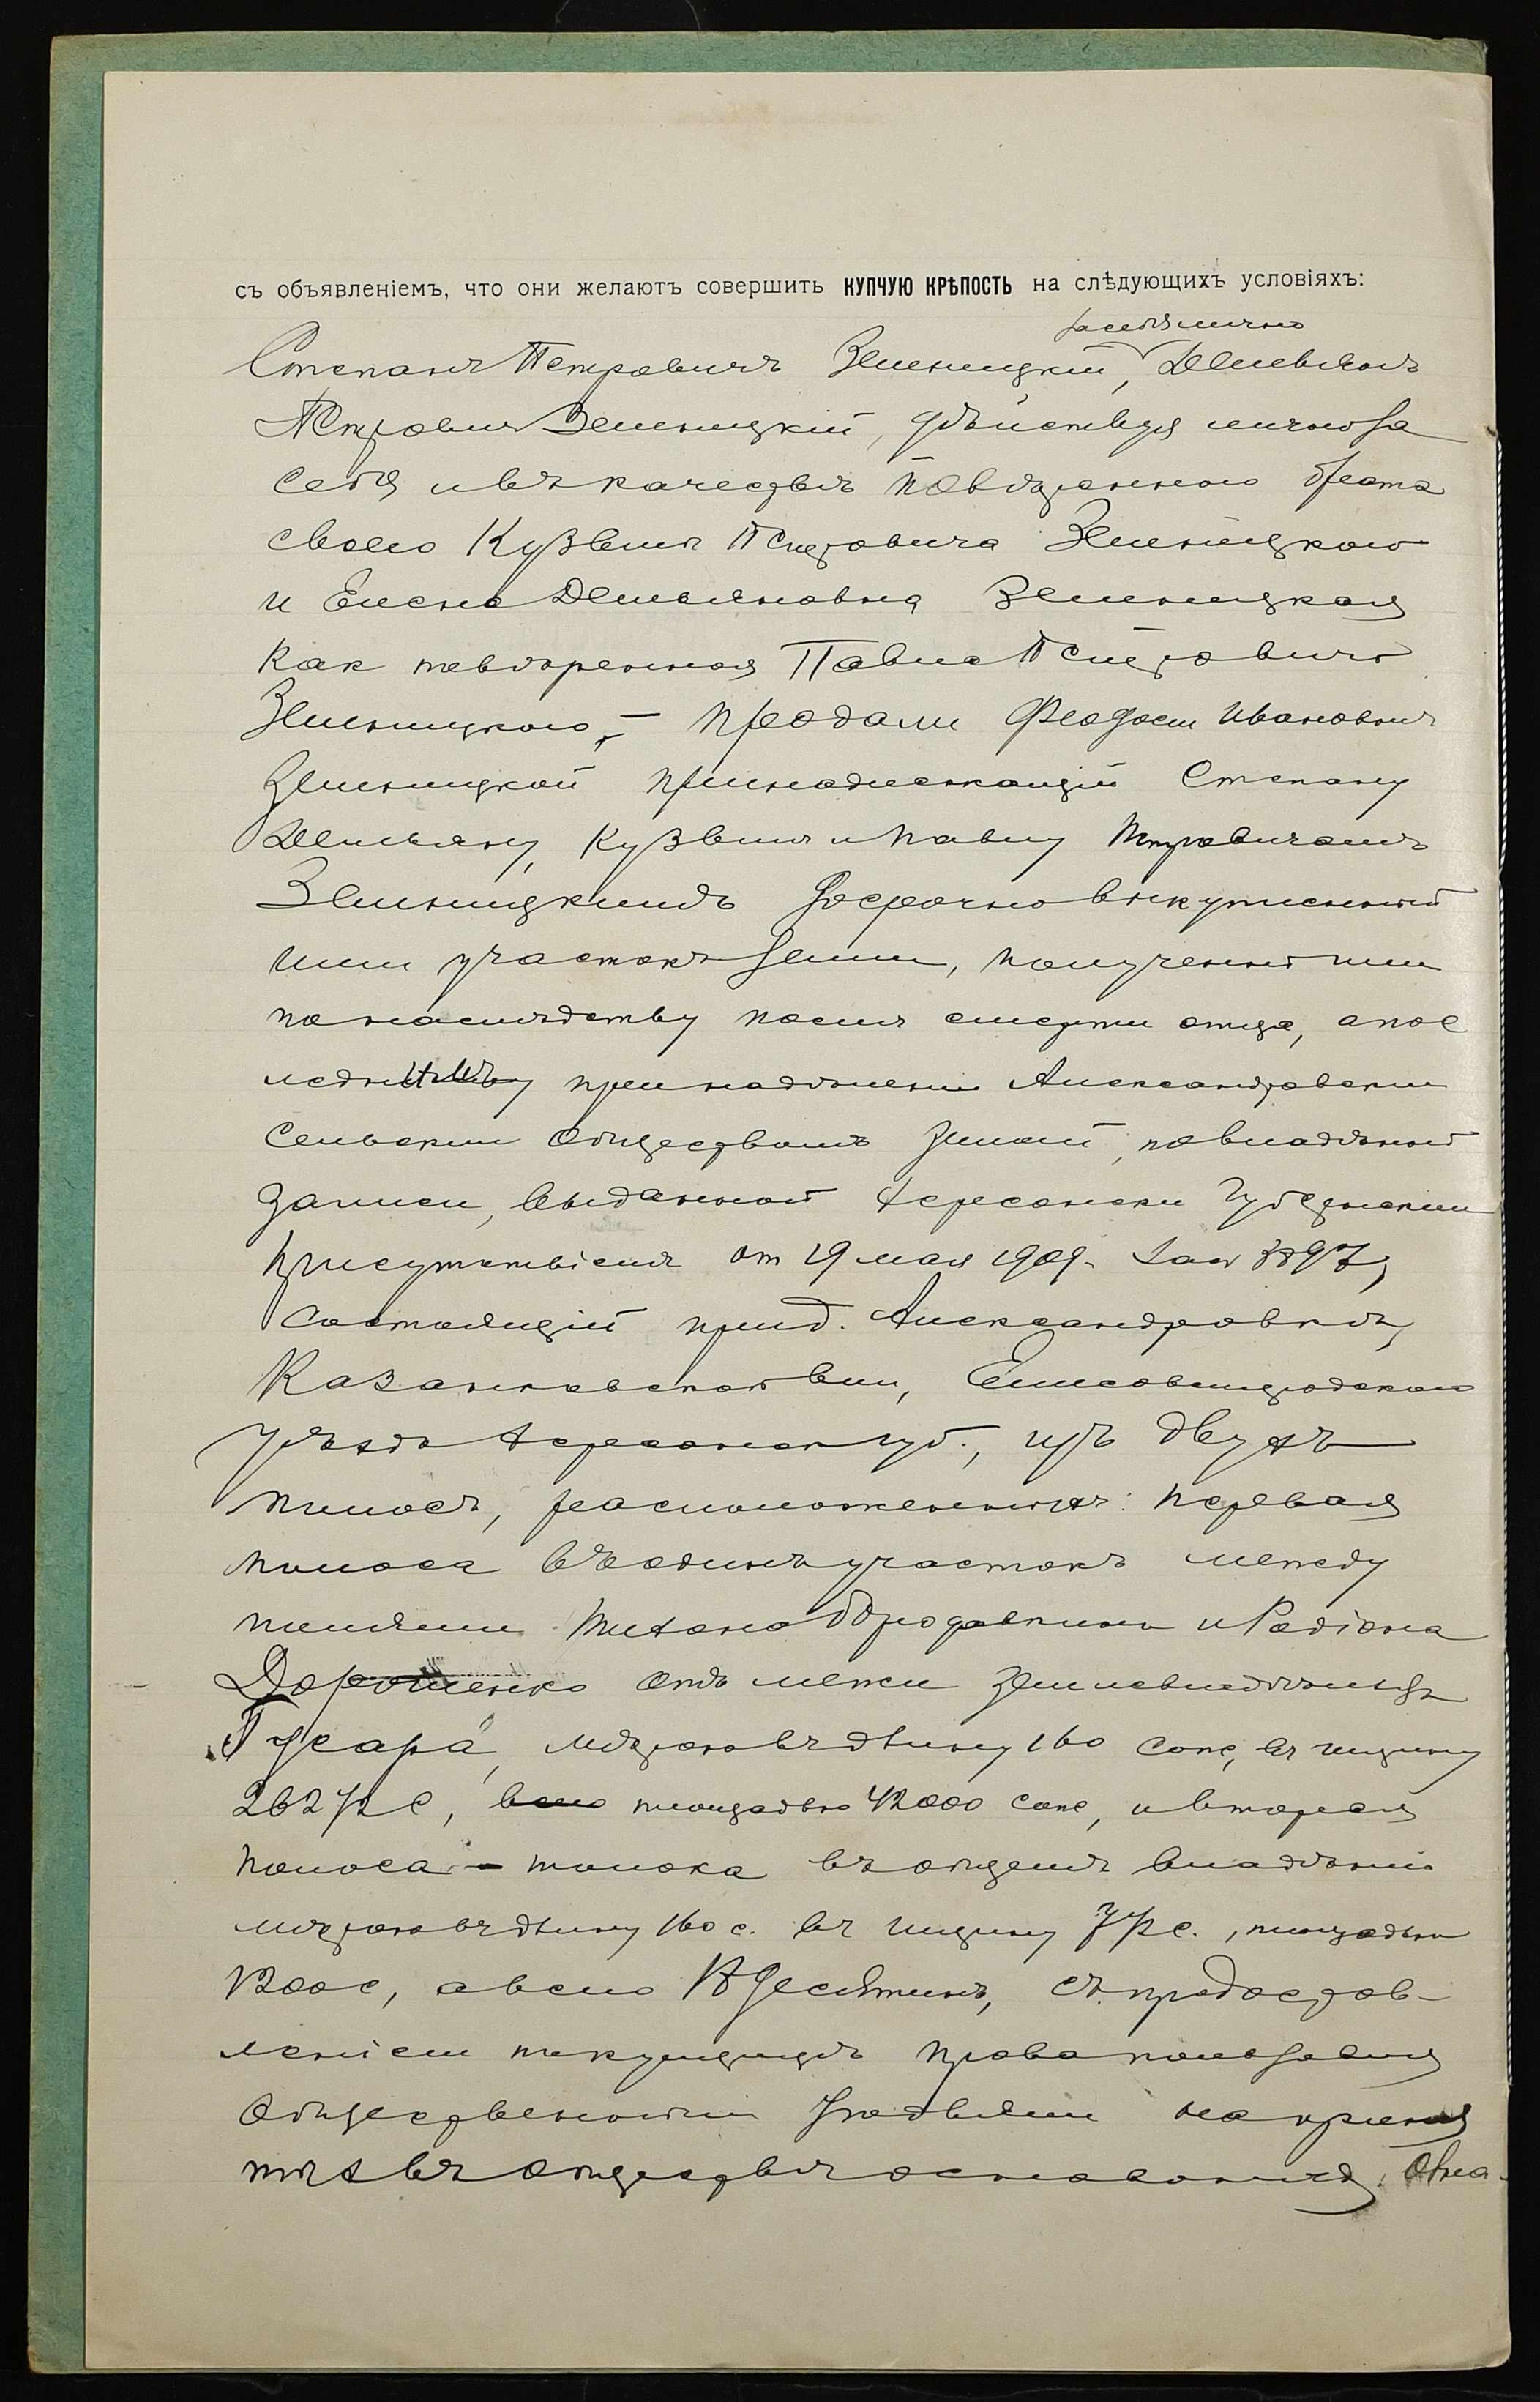 съ объявленіемъ, что они желаютъ совершить КУПЧУЮ КРѢПОСТЬ на слѣдующихъ условіяхъ:
за себя лично
Степанъ Петровичъ Зеленицкій, Демьянъ
Петровичъ Зеленицкій, дѣйствуя лично за
себя и въ качествѣ повѣреннаго брата
своего Кузьмы Петровича Зеленицкаго
и Елена Демьяновна Зеленицкая
как повѣренная Павла Петровича
Зеленицкаго, – продали Феодосіи Ивановнѣ
Зеленицкой принадлежащій Степану
Демьяну, Кузьмѣ и Павлу Петровичамъ
Зеленицкимъ досрочно выкупленный
ими участокъ земли, полученный ими
по наслѣдству послѣ смерти отца, а пос
леднему при надѣленіи Александровским
сельским обществомъ землей, по владѣнной
записи, выданной Херсонским Губернским
Присутствіемъ от 19 мая 1909 за №
состоящій при д. Александровкѣ,
Казанковской вол., Елисаветградскаго
уѣзда Херсонской губ., изъ двухъ
полосъ, расположенныхъ: первая
полоса въ одинъ участокъ между
землями Тихона Бородавкина и Родіона
Дорошенко отъ межи землевладѣльца
Гусара, мѣрою въ длину 160 саж, въ ширину
262 1/2 с, площадью 42000 саж, и вторая
полоса – толока въ общемъ владѣніи
мѣрою въ длину 160 с. въ ширину 7 1/2 с., площадью
1200 с, а всего 18 десятинъ, съ предостав-
леніем покупщицѣ права пользованія
общественными угодьями на приня
тыхъ въ обществѣ основаніяхъ. Озна-